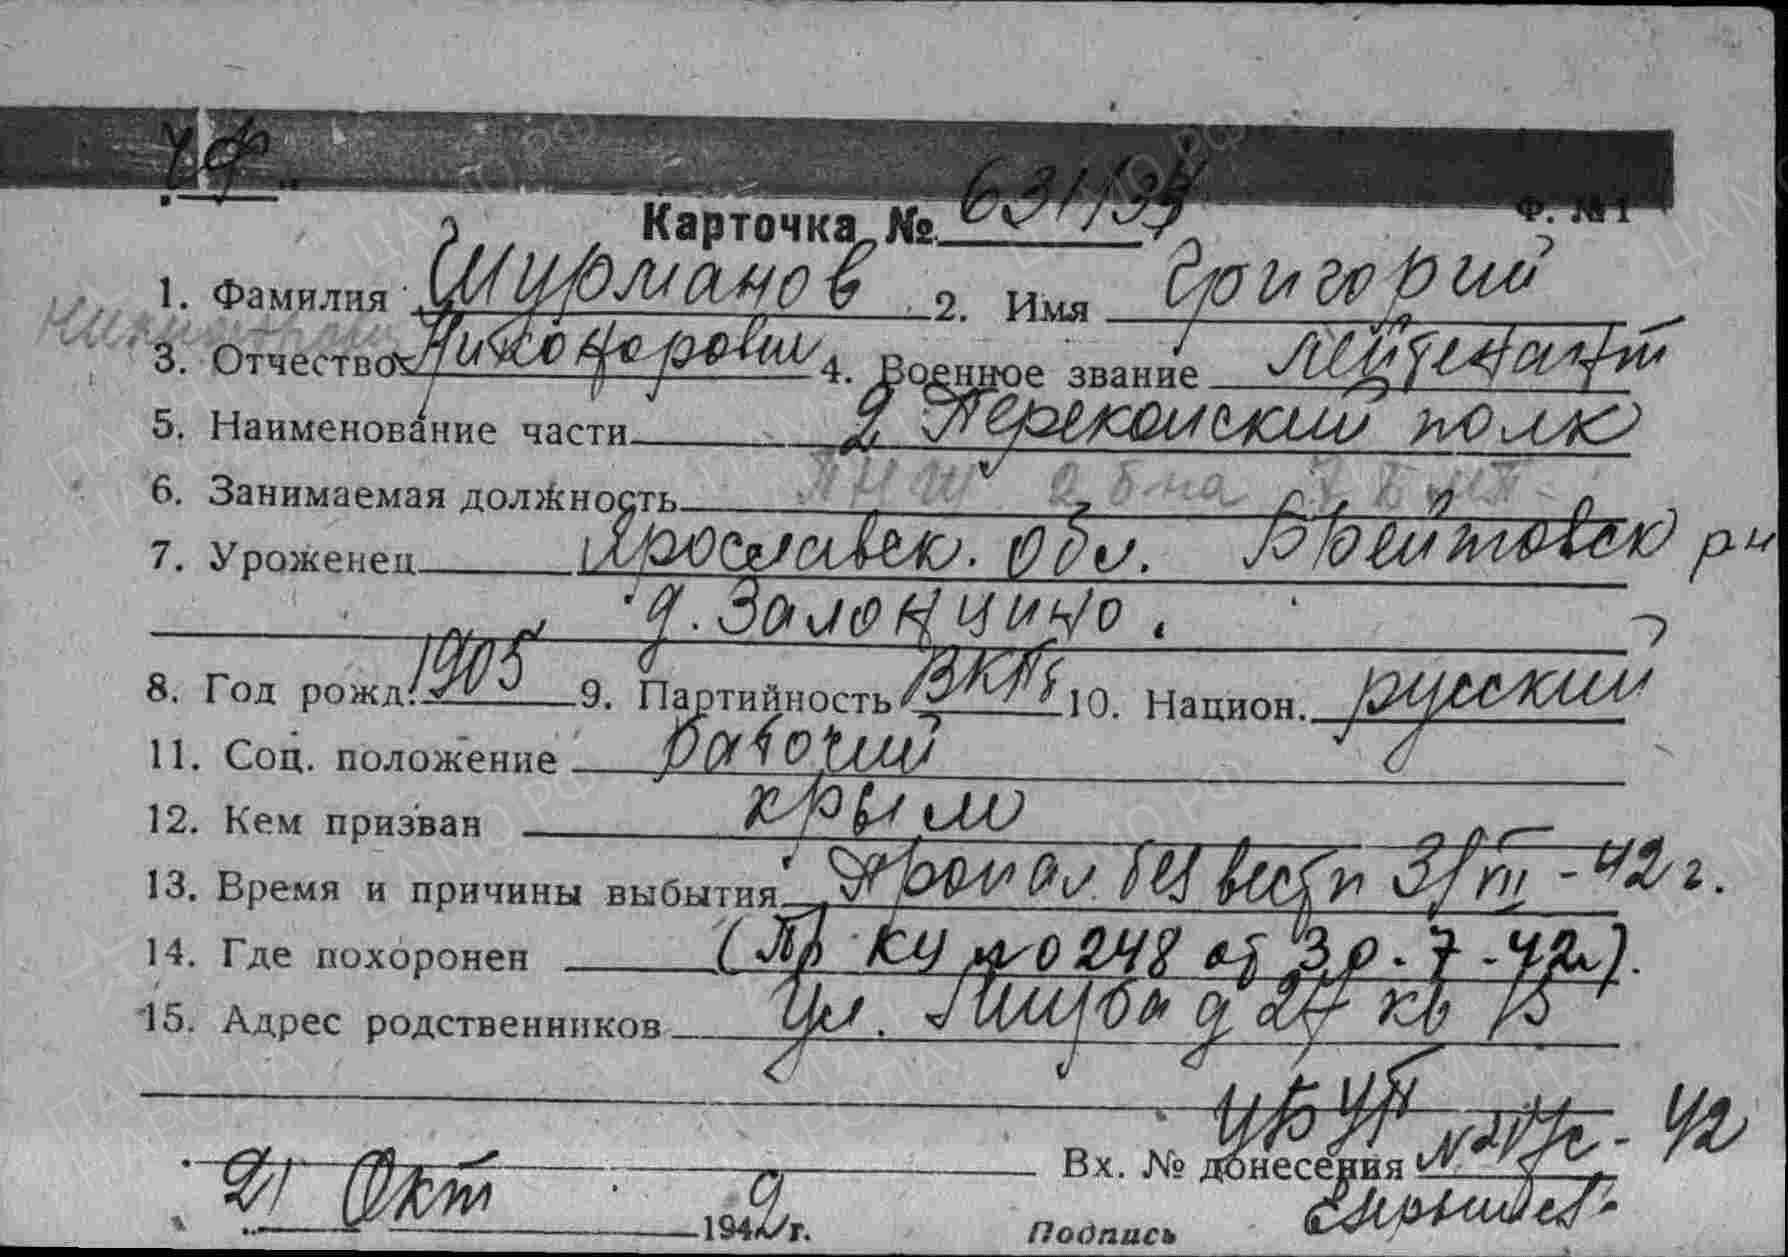 ЧФ
Карточка № 631/34
Ф. № 1
1. Фамилия Шурманов 2. Имя Григорий
3. Отчество Никонорович 4. Военное звание лейтенант
5. Наименование части 2 Перекопский полк
6. Занимаемая должность ПНШ 2 б-на 7 БМП
7. Уроженец Ярославск. обл. Брейтовск р-н
д. Залонцино.
8. Год рожд. 1905 9. Партийность ВКПб 10. Национ. русский
11. Соц. положение рабочий
12. Кем призван Крым
13. Время и причины выбытия Пропал без вести 31/III-42 г.
14. Где похоронен (Пр КЧ № 0248 от 30.7-42г).
15. Адрес родственников ул. д 27 кв
УБ УП
Вх. № донесения № - 42
21 Окт 1942 г.
Подпись